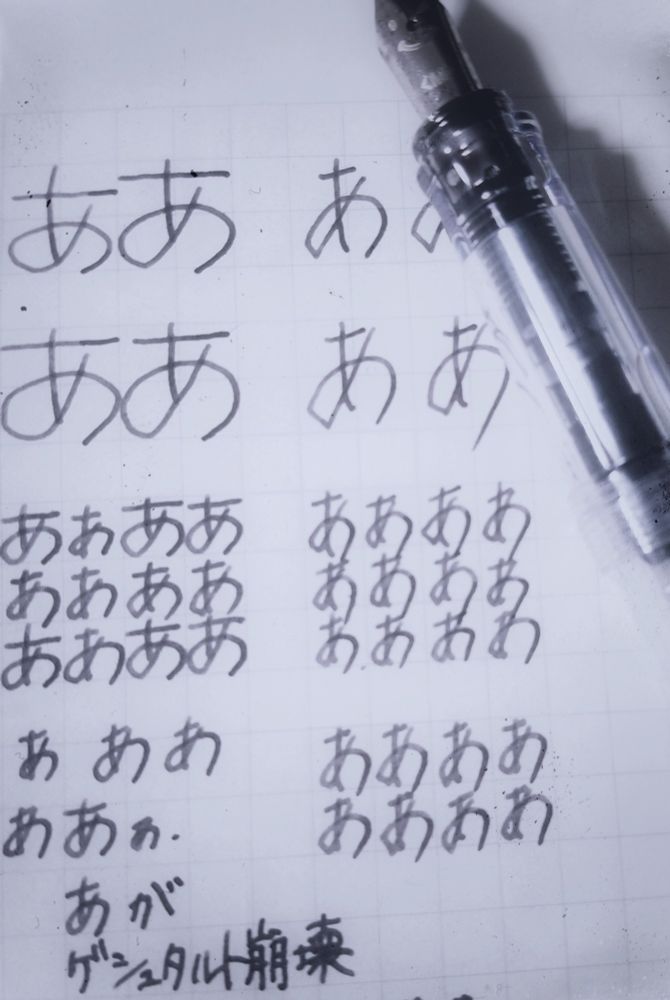 ああ あ
ああ ああ
ああああ ああああ
ああああ ああああ
ああああ ああああ
あああ ああああ
ああぁ. ああああ
あが
ゲシュタルト崩壊